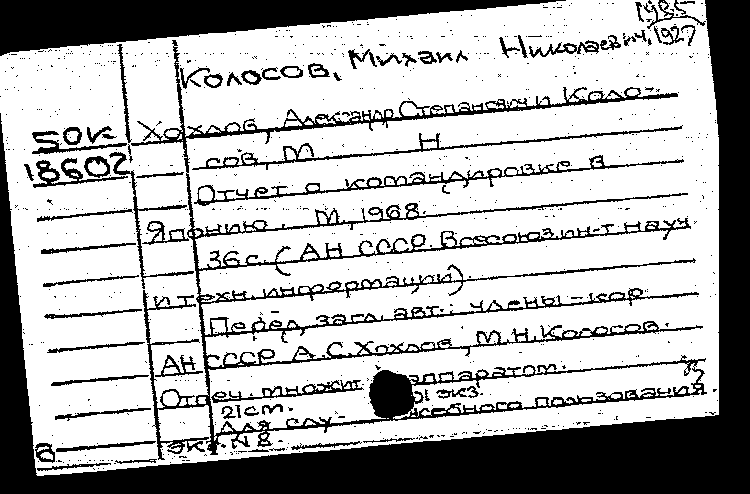 1985
Колосов, Михаил Николаевич, 1927
50К Хохлов, Александр Степанович и Коло-
18602 сов, М Н
Отчет о командировке в
Японию. М., 1968.
36 с. (АН СССР. Всесоюз. ин-т науч
и техн. информации).
Перед загл. авт.: члены-кор
АН СССР А.С. Хохлов, М.Н. Колосов.
Отпеч. множит. аппаратом.
21 см. экз.
Для слу- жебного пользования.
экз. N 8.